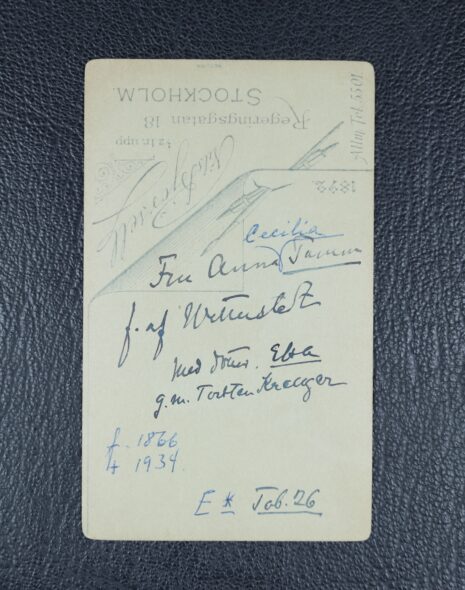 Cecilia
Fru Anna Tamm
f. af Wetterstedt
med dotter. Ebba
g.m. Torsten Kreuger
f. 1866
† 1934.
E * Tab. 26
1892.
Allm. Tel. 5501.
1/2 tr. upp
Regeringsgatan 18
STOCKHOLM.